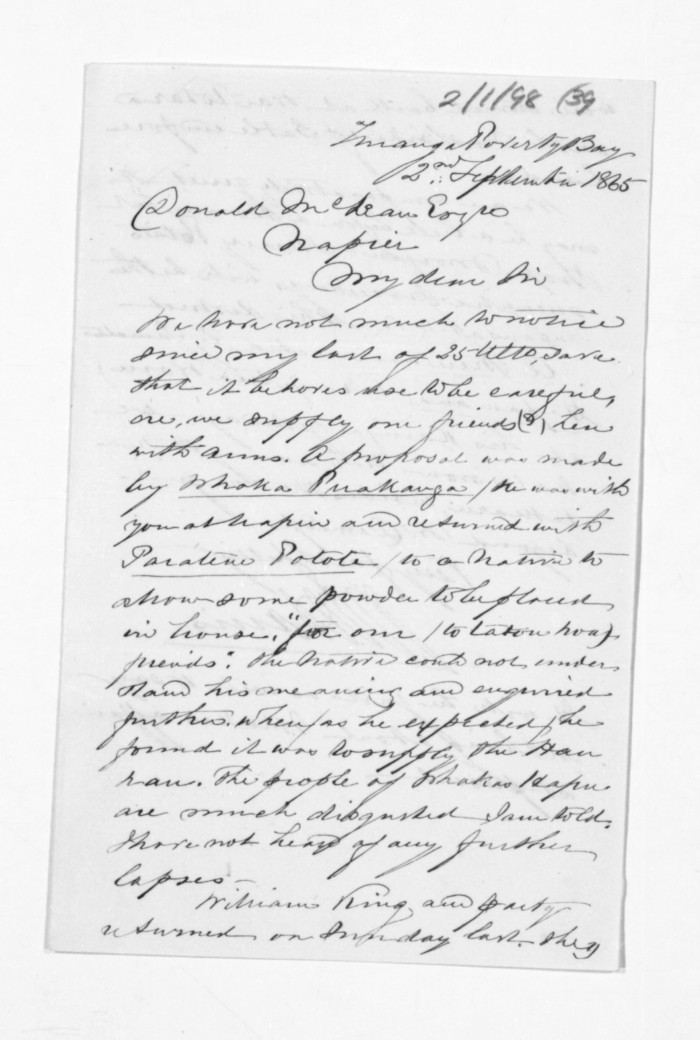 2/1/98 (39
Turanga Poverty Bay
2nd September 1865
Donald McLean Esqre
Napier
My dear Sir
We have not much to notice
since my last of 25 Ulto, save
that it behoves use to be careful,
ere, we supply our friends (?)
with arms. A proposal was made
by Ihaka Puakanga / He was with
you at Napier and returned with
Paratene Potote / to a Native to
show some powder to be placed
in house, "for our / to taton hoa)
friends". The Native could not under
stand his meaning and enquired
further. when / as he expected / he
found it was to supply the Hau
hau. The people of Ihakas Hapu
are much disgusted I am told.
I have not heard of any further
lapses —
William King and party
returned on Sunday last. they